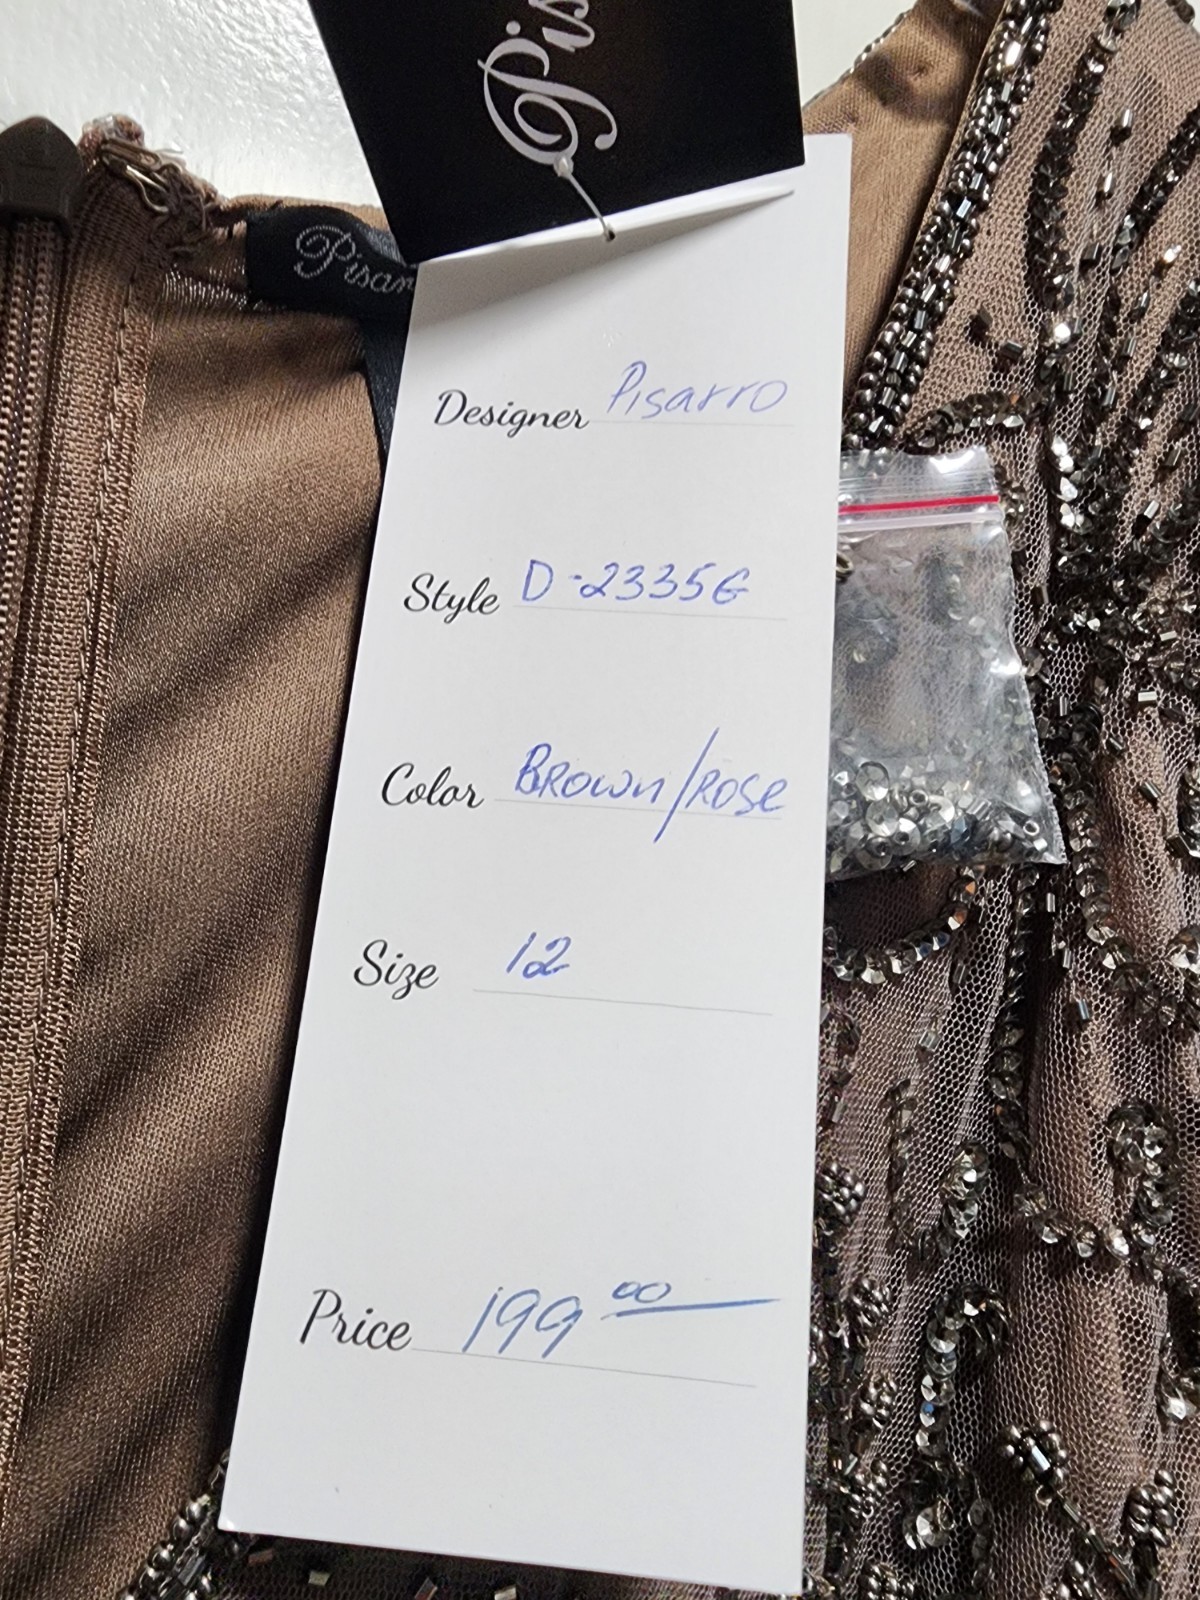 Pis
Pisar
Designer Pisarro
Style D-2335G
Color Brown/Rose
Size 12
Price 199 00